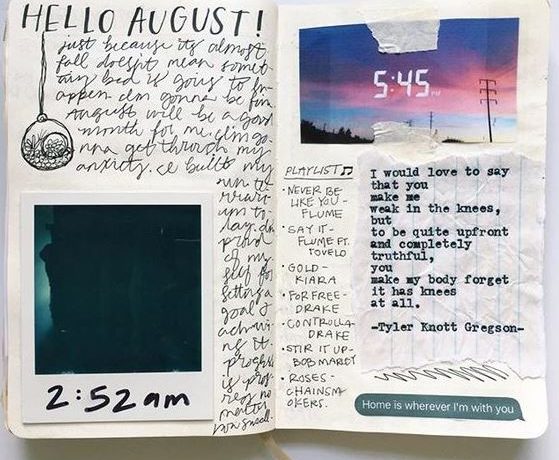 HELLO AUGUST!
just because its almost
fall doesn't mean somet-
hing bad is going to h-
appen. im gonna be fine
August will be a good
month for me. im go-
nna get through my
anxiety. i built my
own te-
rrari-
um to-
day. im
proud
of my
self for
setting a
goal &
achievi-
ng it.
progress
is prog-
ress no
matter
how small.
2:52am
5:45 PM
PLAYLIST♫
• NEVER BE
LIKE YOU-
FLUME
• SAY IT-
FLUME FT.
TOVELO
• GOLD-
KIARA
• FOR FREE-
DRAKE
• CONTROLLA-
DRAKE
• STIR IT UP-
BOB MARLY
• ROSES-
CHAINSM-
OKERS.
I would love to say
that you
make me
weak in the knees,
but
to be quite upfront
and completely
truthful,
you
make my body forget
it has knees
at all.
-Tyler Knott Gregson-
Home is wherever I'm with you